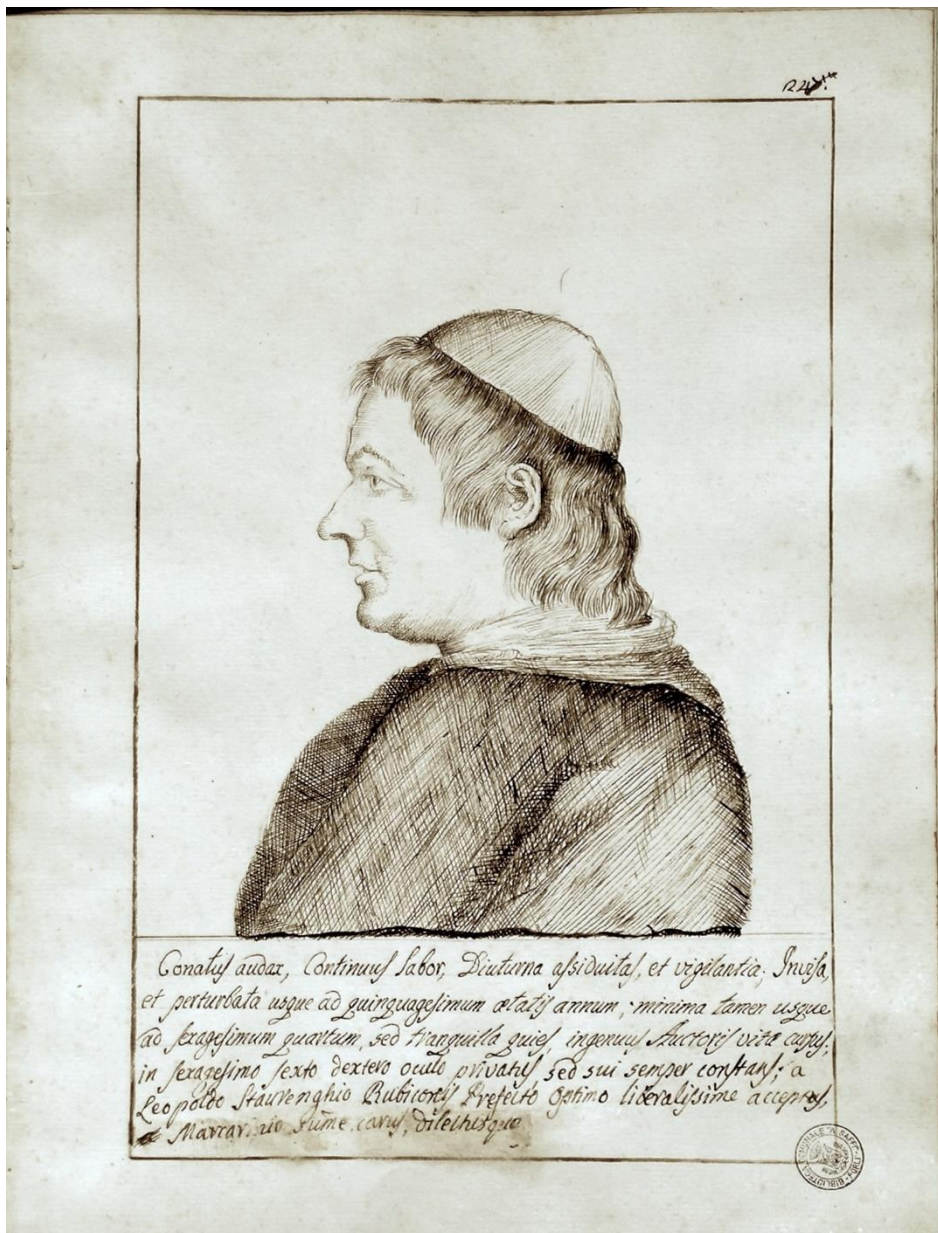 Conatus audax, Continuus labor, Diuturna assiduitas, et vigilantia; Invisa,
et perturbata usque ad quinquagesimum ætatis annum; minima tamen usque
ad sexagesimum quartum, sed tranquilla quies, ingenuus Auctoris vitæ cursus;
in sexagesimo sexto dextero oculo privatus sed sui semper constans; a
Leopoldo Staurenghio Rubicortis Prefecto Optimo liberalissime acceptus,
carus, dilectusque
BIBLIOTECA COMUNALE "A. SAFFI" - FORLI